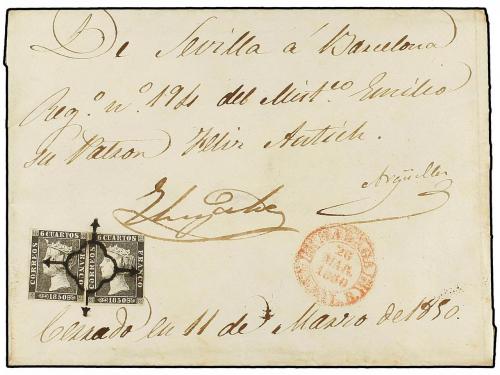 De Sevilla á Barcelona
Reg.º nº 194 del Mist.co Emilio
su Patron Felix Antich.
Argüelles
6 CUARTOS 6 CUARTOS
CORREOS CORREOS FRANCO
1850 1850
26
MAR.
1850
Cerrado en 11 de Marzo de 1850.